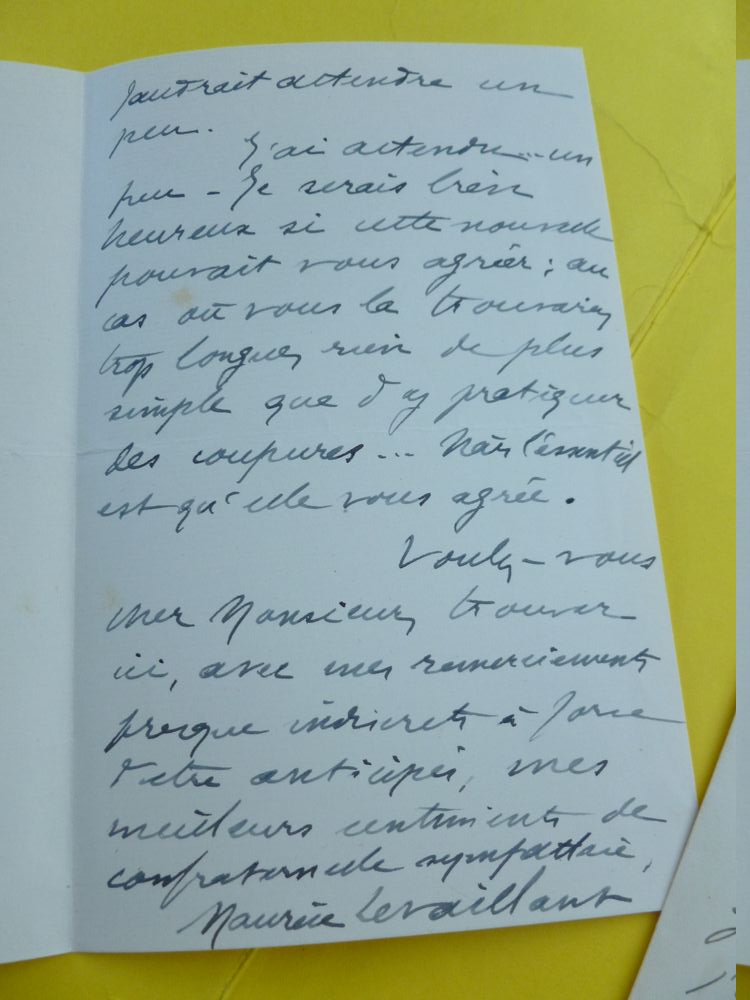 faudrait attendre un
peu.
J'ai attendu... un
peu - Je serais bien
heureux si cette nouvelle
pouvait vous agréer ; au
cas où vous la trouveriez
trop longue, rien de plus
simple que d'y pratiquer
des coupures... Mais l'essentiel
est qu'elle vous agrée.
Voulez-vous
cher Monsieur, trouver
ici, avec mes remerciements
presque indiscrets à force
d'être anticipés, mes
meilleurs sentiments de
confraternelle sympathie,
Maurice Levaillant